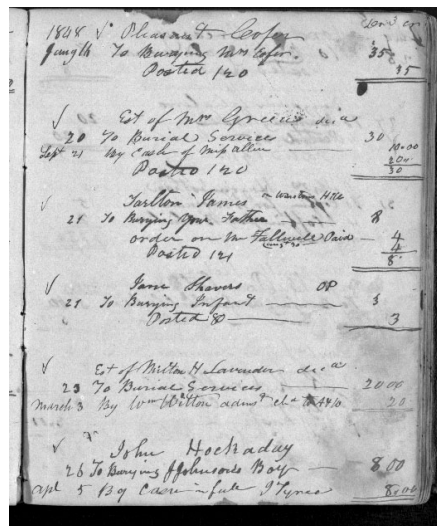 1848 √ Pleasant Cofer Dr 3 Cr
To Burying Mrs Cofer. 35
Posted 120 35
√ Est of Mrs Greens dec
20 To Burial Services 30
Sept 21 By Cash of Miss Allen 10.00
20
Posted 120 30
√ Tarlton James
21 To Burying your Father 8
order on Mr Paid 4
4
Posted 121 8
√ Jane Shavers OP
21 To Burying Infant 3
Posted 8 3
√ Est of Milton H Lavender dec
23 To Burial Services 20 00
March 3 By Wm Witton 20
√ John Hockaday
26 To Burying Johnsons Boy 8.00
Apl 5 By Cash in full J Tyree 8.00